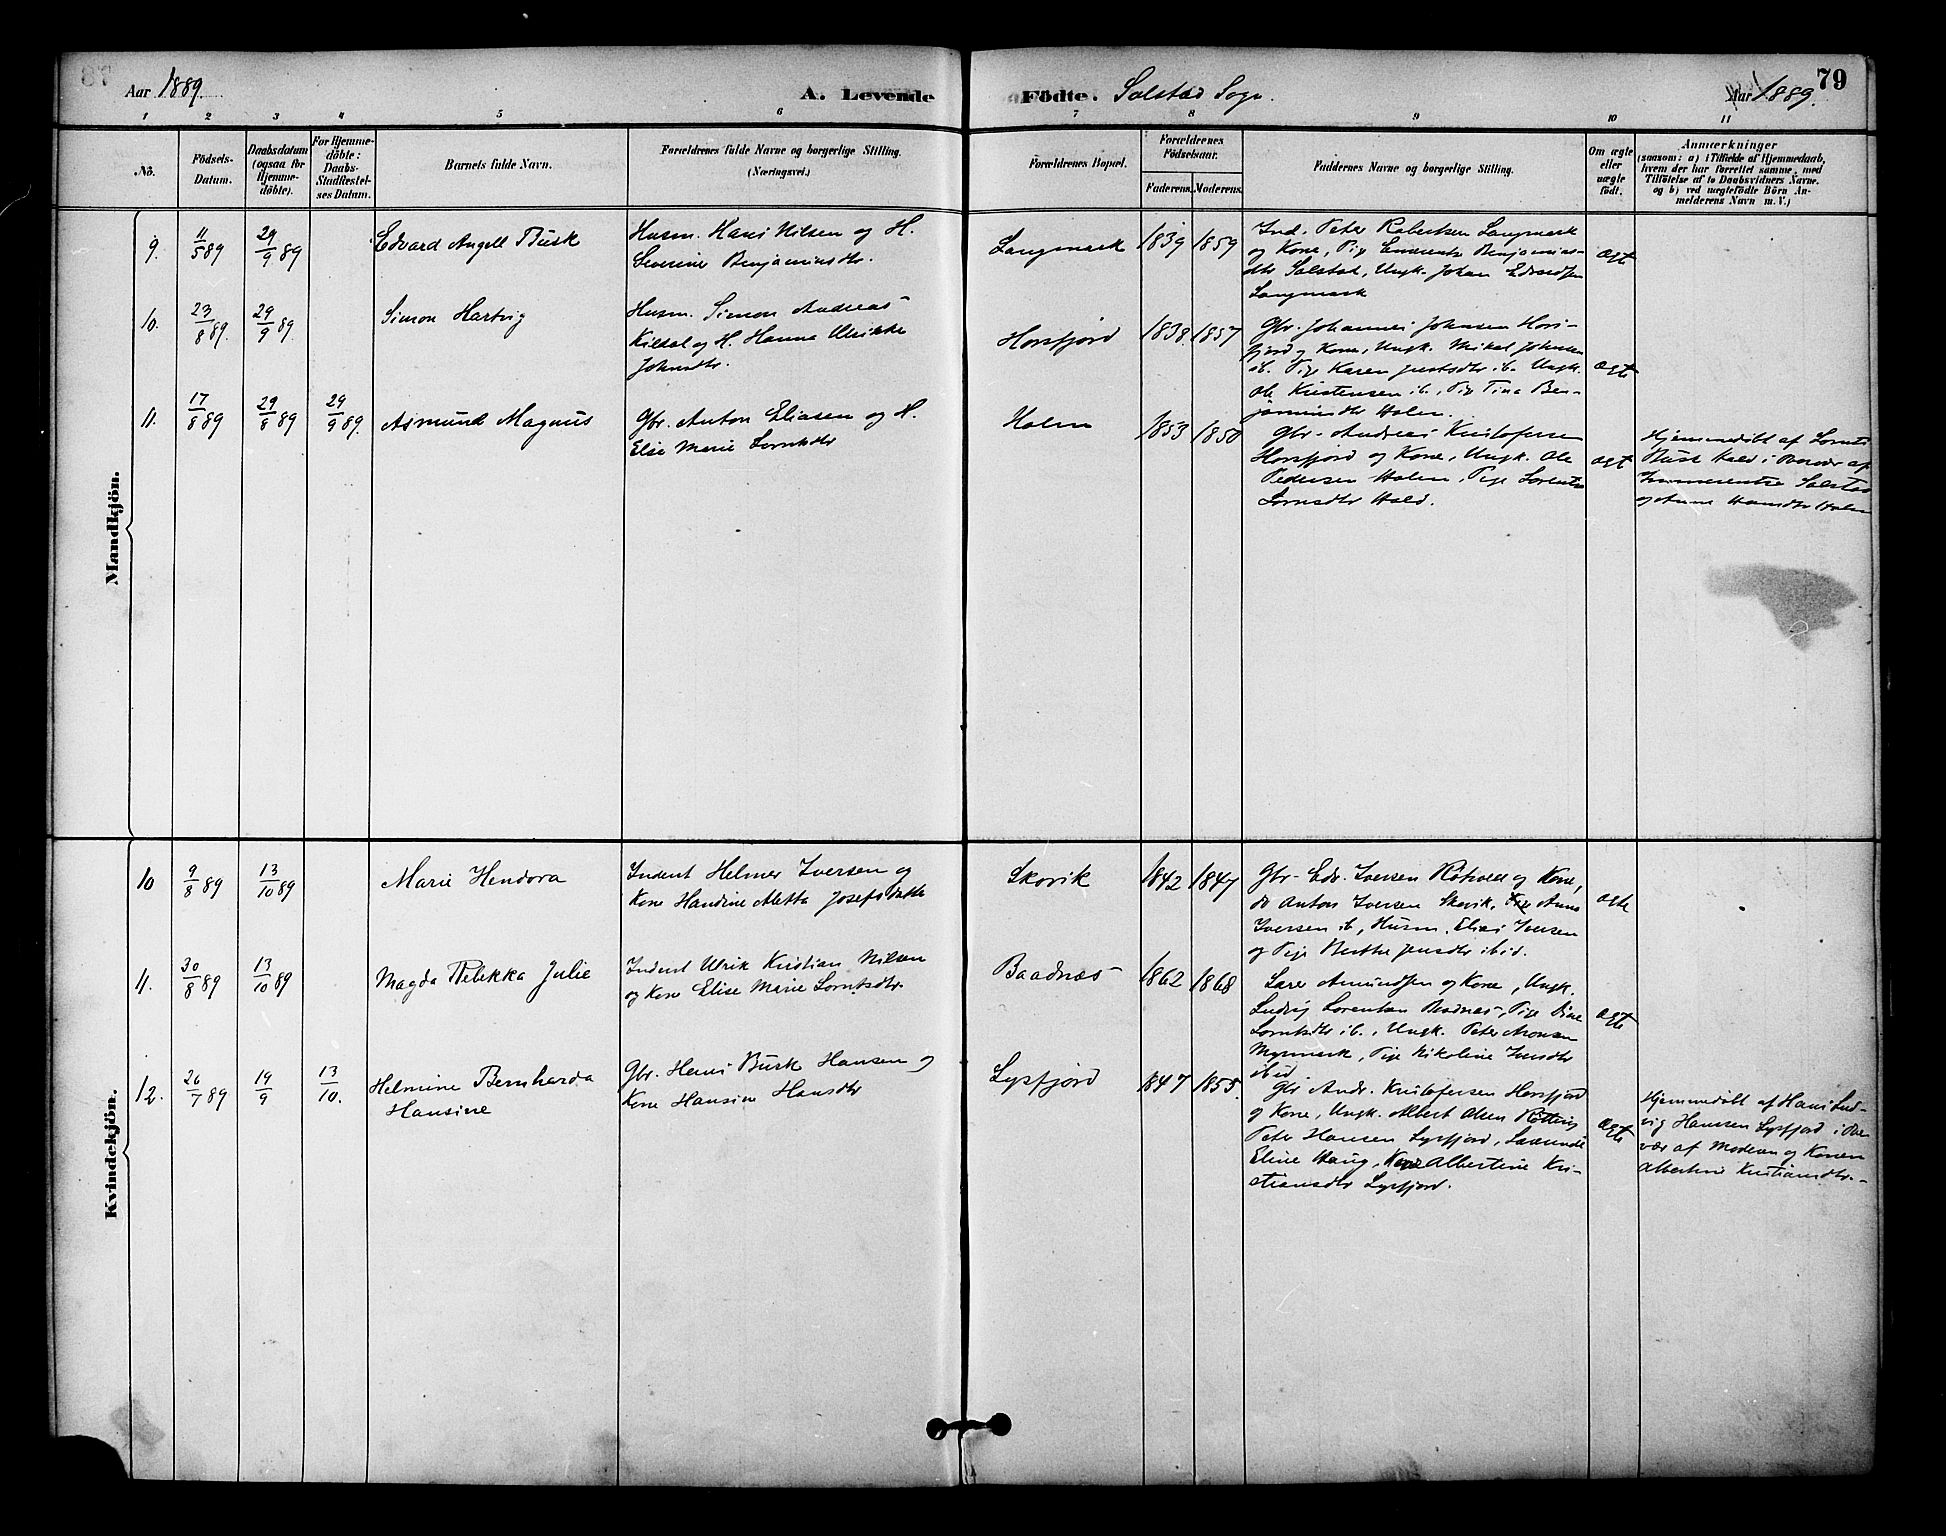 Aar 1889.
A. Levende Födte. Solstad Sogn.
Aar 1889.
79
1 2 3 4 5 6 7 8 9 10 11
No.
Födsels-Datum.
Daabsdatum (ogsaa for Hjemme-döbte).
For Hjemme-döbte: Daabs-Stadfæstel-ses Datum.
Barnets fulde Navn.
Forældrenes fulde Navne og borgerlige Stilling.
(Næringsvei.)
Forældrenes Bopæl.
Forældrenes Födselsaar.
Faderens. Moderens.
Faddernes Navne og borgerlige Stilling.
Om ægte eller uægte födt.
Anmærkninger
(saasom: a) i Tilfælde af Hjemmedaab,
hvem der har forrettet samme, med
Tilföielse af to Daabsvidners Navne.
og b) ved uægtefödte Börn An-
melderens Navn m. V.)
Mandkjön.
9. 11/5 89 29/9 89 Edvard Angell Busk
Husm. Hans Nilsen og H.
Severine Benjaminsdtr.
Langmark 1839 1859
Ind. Peter Robertsen Langmark
og Kone, Pige Emerentse Benjamins-
dtr Solstad, Ungk. Johan Edvardsen
Langmark
ægte
10. 23/8 89. 29/9 89. Simon Hartvig
Husm. Simon Andreas
Kildal og H. Hanna Ulrikke
Johnsdtr.
Horsfjord 1838. 1857
Gbr. Johannes Johnsen Hors-
fjord og Kone, Ungk. Mikal Johnsen
ib. Pige Karen Justsdtr ib. Ungk.
Ole Kristensen ib., Pige Tina Ben-
jaminsdtr Holm.
ægte
11. 17/8 89 29/8 89 29/9 89. Asmund Magnus
Gbr. Anton Eliasen og H.
Elise Marie Lorntsdtr
Holm 1853 1850
Gbr. Andreas Kristofersen
Horsfjord og Kone, Ungk. Ole
Pedersen Holm, Pige Lorentse
Lorntsdtr Hald.
ægt
Hjemmedöbt af Lornts
Busk Hald i Overvær af
Emerentse Solstad
og Anne Hansdtr Holm
Kvindekjön.
10 9/8 89 13/10 89 Marie Hendora
Inderst Helmer Iversen og
Kone Handine Aletta Josefsdatter
Skovik 1842 1847
Gbr. Edv. Iversen Röthvell og Kone,
do Anton Iversen Skovik, Pige Anna
Iversen ib, Husm. Elias Iversen
og Pige Berthe Jensdtr ibid.
ægte
11. 30/8 89 13/10 89 Magda Rebekka Julie
Inderst Ulrik Kristian Nilsen
og Kone Elise Marie Lorntsdtr.
Baadnæs 1862 1868
Lærer Amundsen og Kone, Ungk.
Ludvig Lorentsen Baadnæs, Pige Oline
Lorntsdtr ib., Ungk. Peter Aronsen
Myrmark, Pige Nikoline Iversdtr
ibid
ægte
12. 26/7 89 19/9 13/10. Helmine Bernharda
Hansine
Gbr. Hans Busk Hansen og
Kone Hansine Hansdtr
Lysfjord 1847 1855.
Gbr Andr. Kristofersen Horsfjord
og Kone, Ungk. Albert Olsen Röttring
Peter Hansen Lysfjord,
Eline Haug, Kone Albertine Kri-
stiansdtr Lysfjord.
ægte
Hjemmedöbt af Hans Lud-
vig Hansen Lysfjord i Over
vær af Moderen og Konen
Albertine Kristiansdtr.